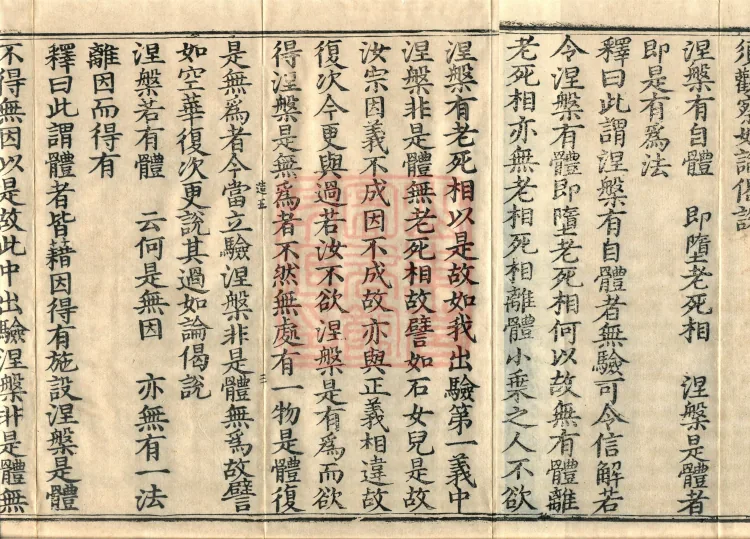 須觀察如論偈說
涅槃有自體　即墮老死相　涅槃是體者
即是有為法
釋曰此謂涅槃有自體者無驗可令信解若
令涅槃有體即墮老死相何以故無有體離
老死相亦無老相死相離體小乘之人不欲
涅槃有老死相以是故如我出驗第一義中
涅槃非是體無老死相故譬如石女兒是故
汝宗因義不成因不成故亦與正義相違故
復次今更與過若汝不欲涅槃是有為而欲
得涅槃是無為者不然無處有一物是體復
是無為者今當立驗涅槃非是體無為故譬
如空華復次更說其過如論偈說
涅槃若有體　云何是無因　亦無有一法
離因而得有
釋曰此謂體者皆藉因得有施設涅槃是體
不得無因以是故此中出驗涅槃非是體無